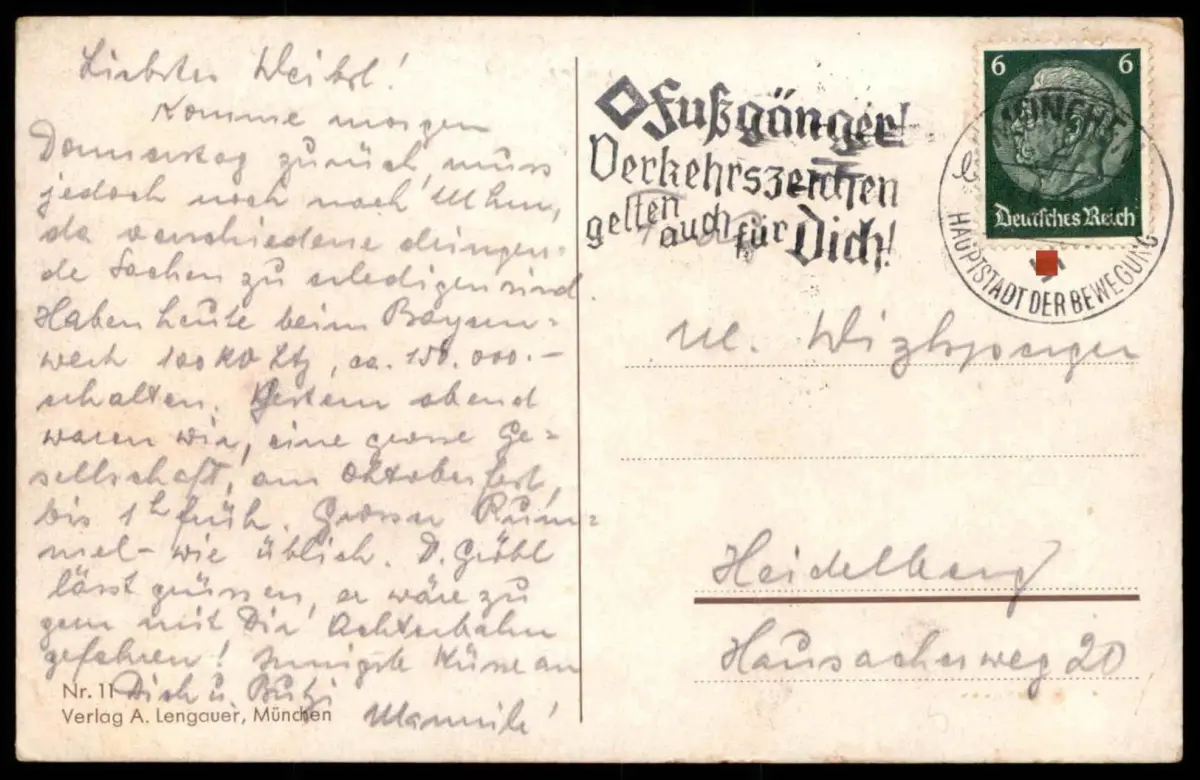 Liebstes Weiberl!
Komme morgen
Donnerstag zurück, muss
jedoch noch nach Ulm,
da verschiedene dringen-
de Sachen zu erledigen sind
Haben heute beim Bayern-
werk 100 KV Ltg, ca. 150.000.-
erhalten. Gestern abend
waren wir, eine grosse Ge-
sellschaft, am Oktoberfest,
bis 1h früh. Grosser Rum-
mel - wie üblich. D. Gröbl
lässt grüssen, er wäre zu
gern mit Dir Achterbahn
gefahren! Innigste Küsse an
Dich u. Butzi
Nr. 11
Verlag A. Lengauer, München
Fußgänger!
Verkehrszeichen
gelten auch für Dich!
6 6
Deutsches Reich
MÜNCHEN
HAUPTSTADT DER BEWEGUNG
Heidelberg
Hausackerweg 20